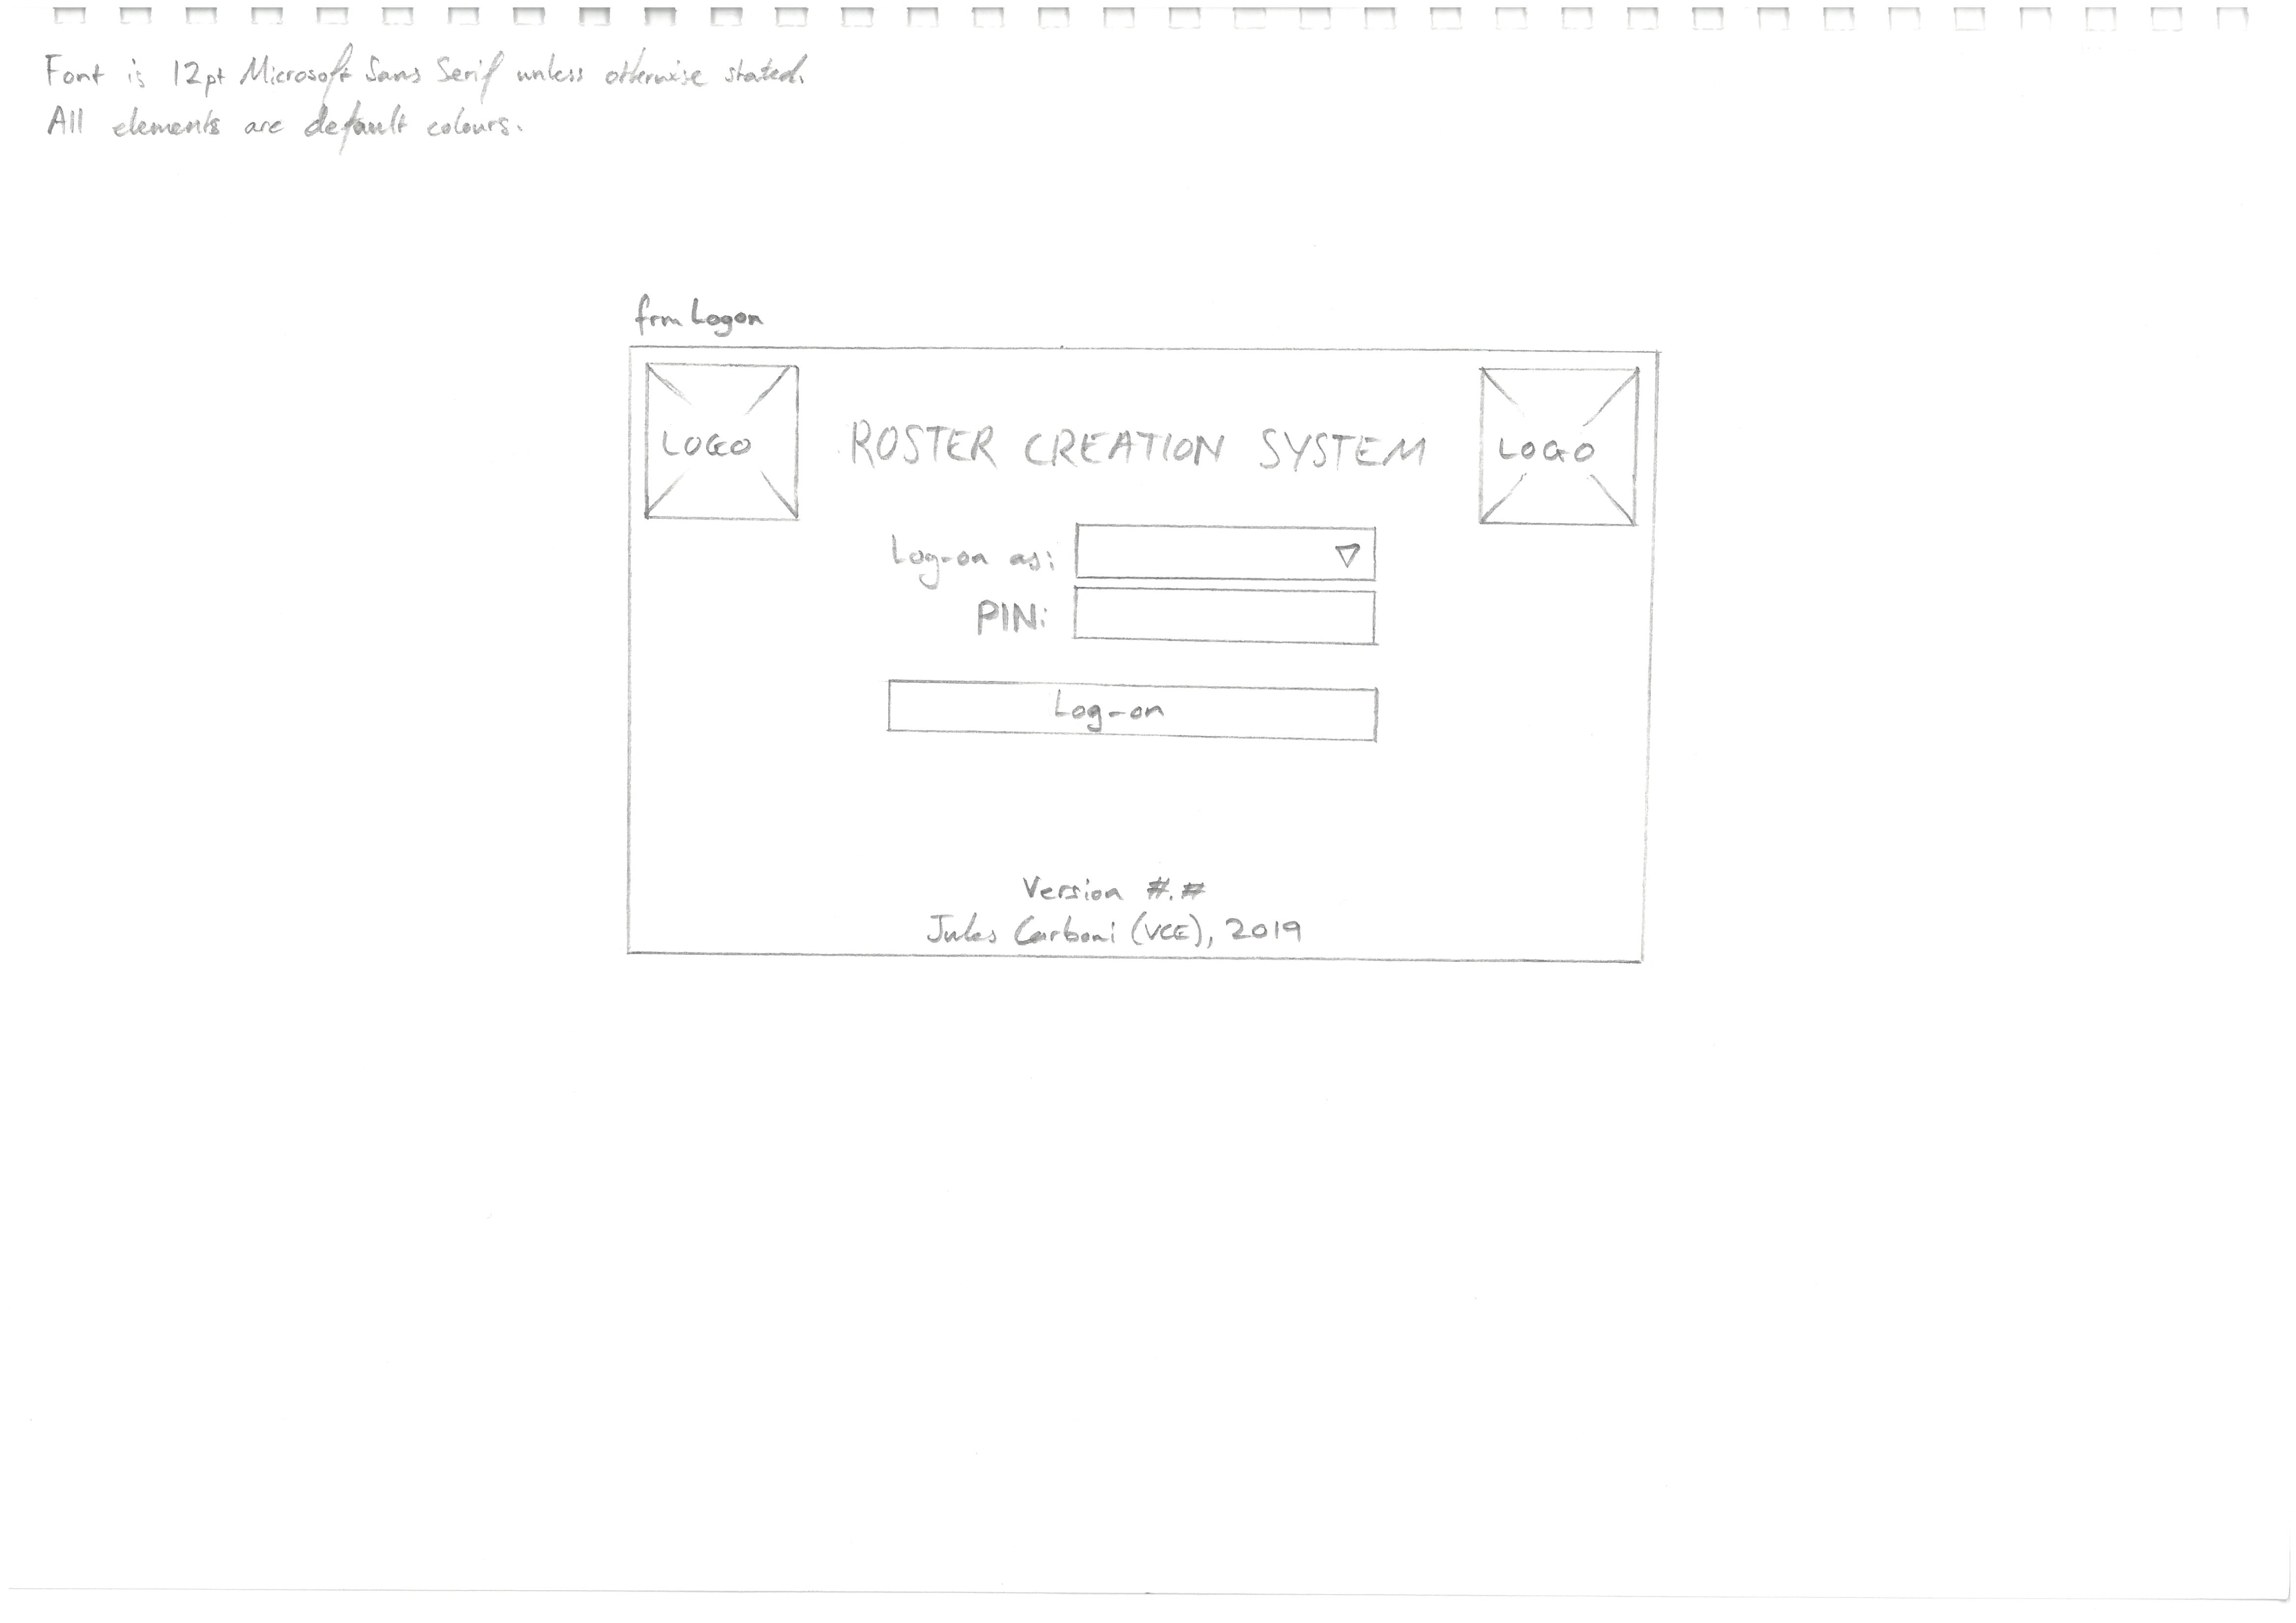 Font is 12pt Microsoft Sans Serif unless otherwise stated.
All elements are default colours.
frmLogon
LOGO
ROSTER CREATION SYSTEM
LOGO
Log-on as:
PIN:
Log-on
Version #.#
Jules Carboni (VCE), 2019